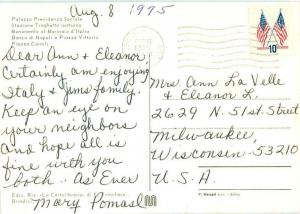 Aug. 8 1975
Palazzo Previdenza Sociale
Stazione Traghetto notturno
Monumento al Marinaio d'Italia
Banco di Napoli e Piazza Vittoria
Piazza Cairoli
Dear Ann & Eleanor,
Certainly am enjoying
Italy & Jims family.
Keep an eye on
your neighbors
and hope all is
fine with you
both. As Ever
Mary Pomasl
10¢
Mrs. Ann La Velle
& Eleanor L.
2629 N. 51st. Street
Milwaukee,
Wisconsin - 53210
U. S. A.